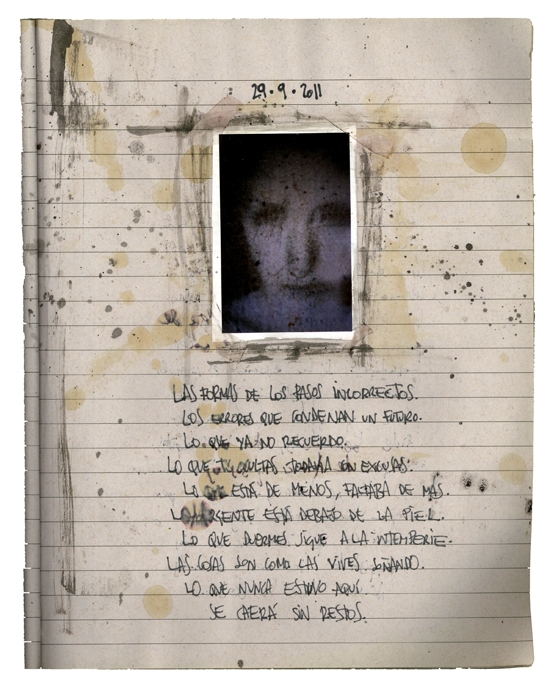 29·9·2011
LAS FORMAS DE LOS PASOS INCORRECTOS.
LOS ERRORES QUE CONDENAN UN FUTURO.
LO QUE YA NO RECUERDO.
LO QUE TÚ OCULTAS TODAVÍA SON EXCUSAS.
LO QUE ESTÁ DE MENOS, FALTABA DE MÁS.
LO URGENTE ESTÁ DEBAJO DE LA PIEL.
LO QUE DUERMES SIGUE A LA INTEMPERIE.
LAS COSAS SON COMO LAS VIVES SOÑANDO.
LO QUE NUNCA ESTUVO AQUÍ
SE CAERÁ SIN RESTOS.